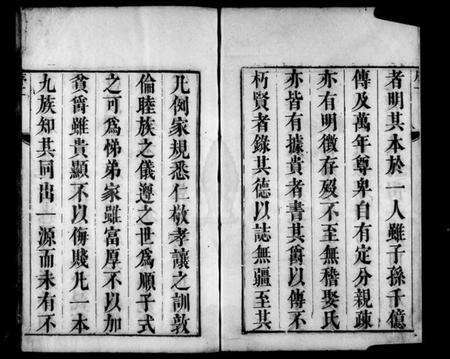 者明其本於一人雖子孫千億
傳及萬年尊卑自有定分親疎
亦有明徵存歿不至無稽娶氏
亦皆有據貴者書其爵以傳不
朽賢者錄其德以誌無疆至其
凡例家規悉仁敬孝讓之訓敦
倫睦族之儀遵之世爲順子式
之可爲悌弟家雖富厚不以加
貧爵雖貴顯不以侮賤凡一本
九族知其同出一源而未有不